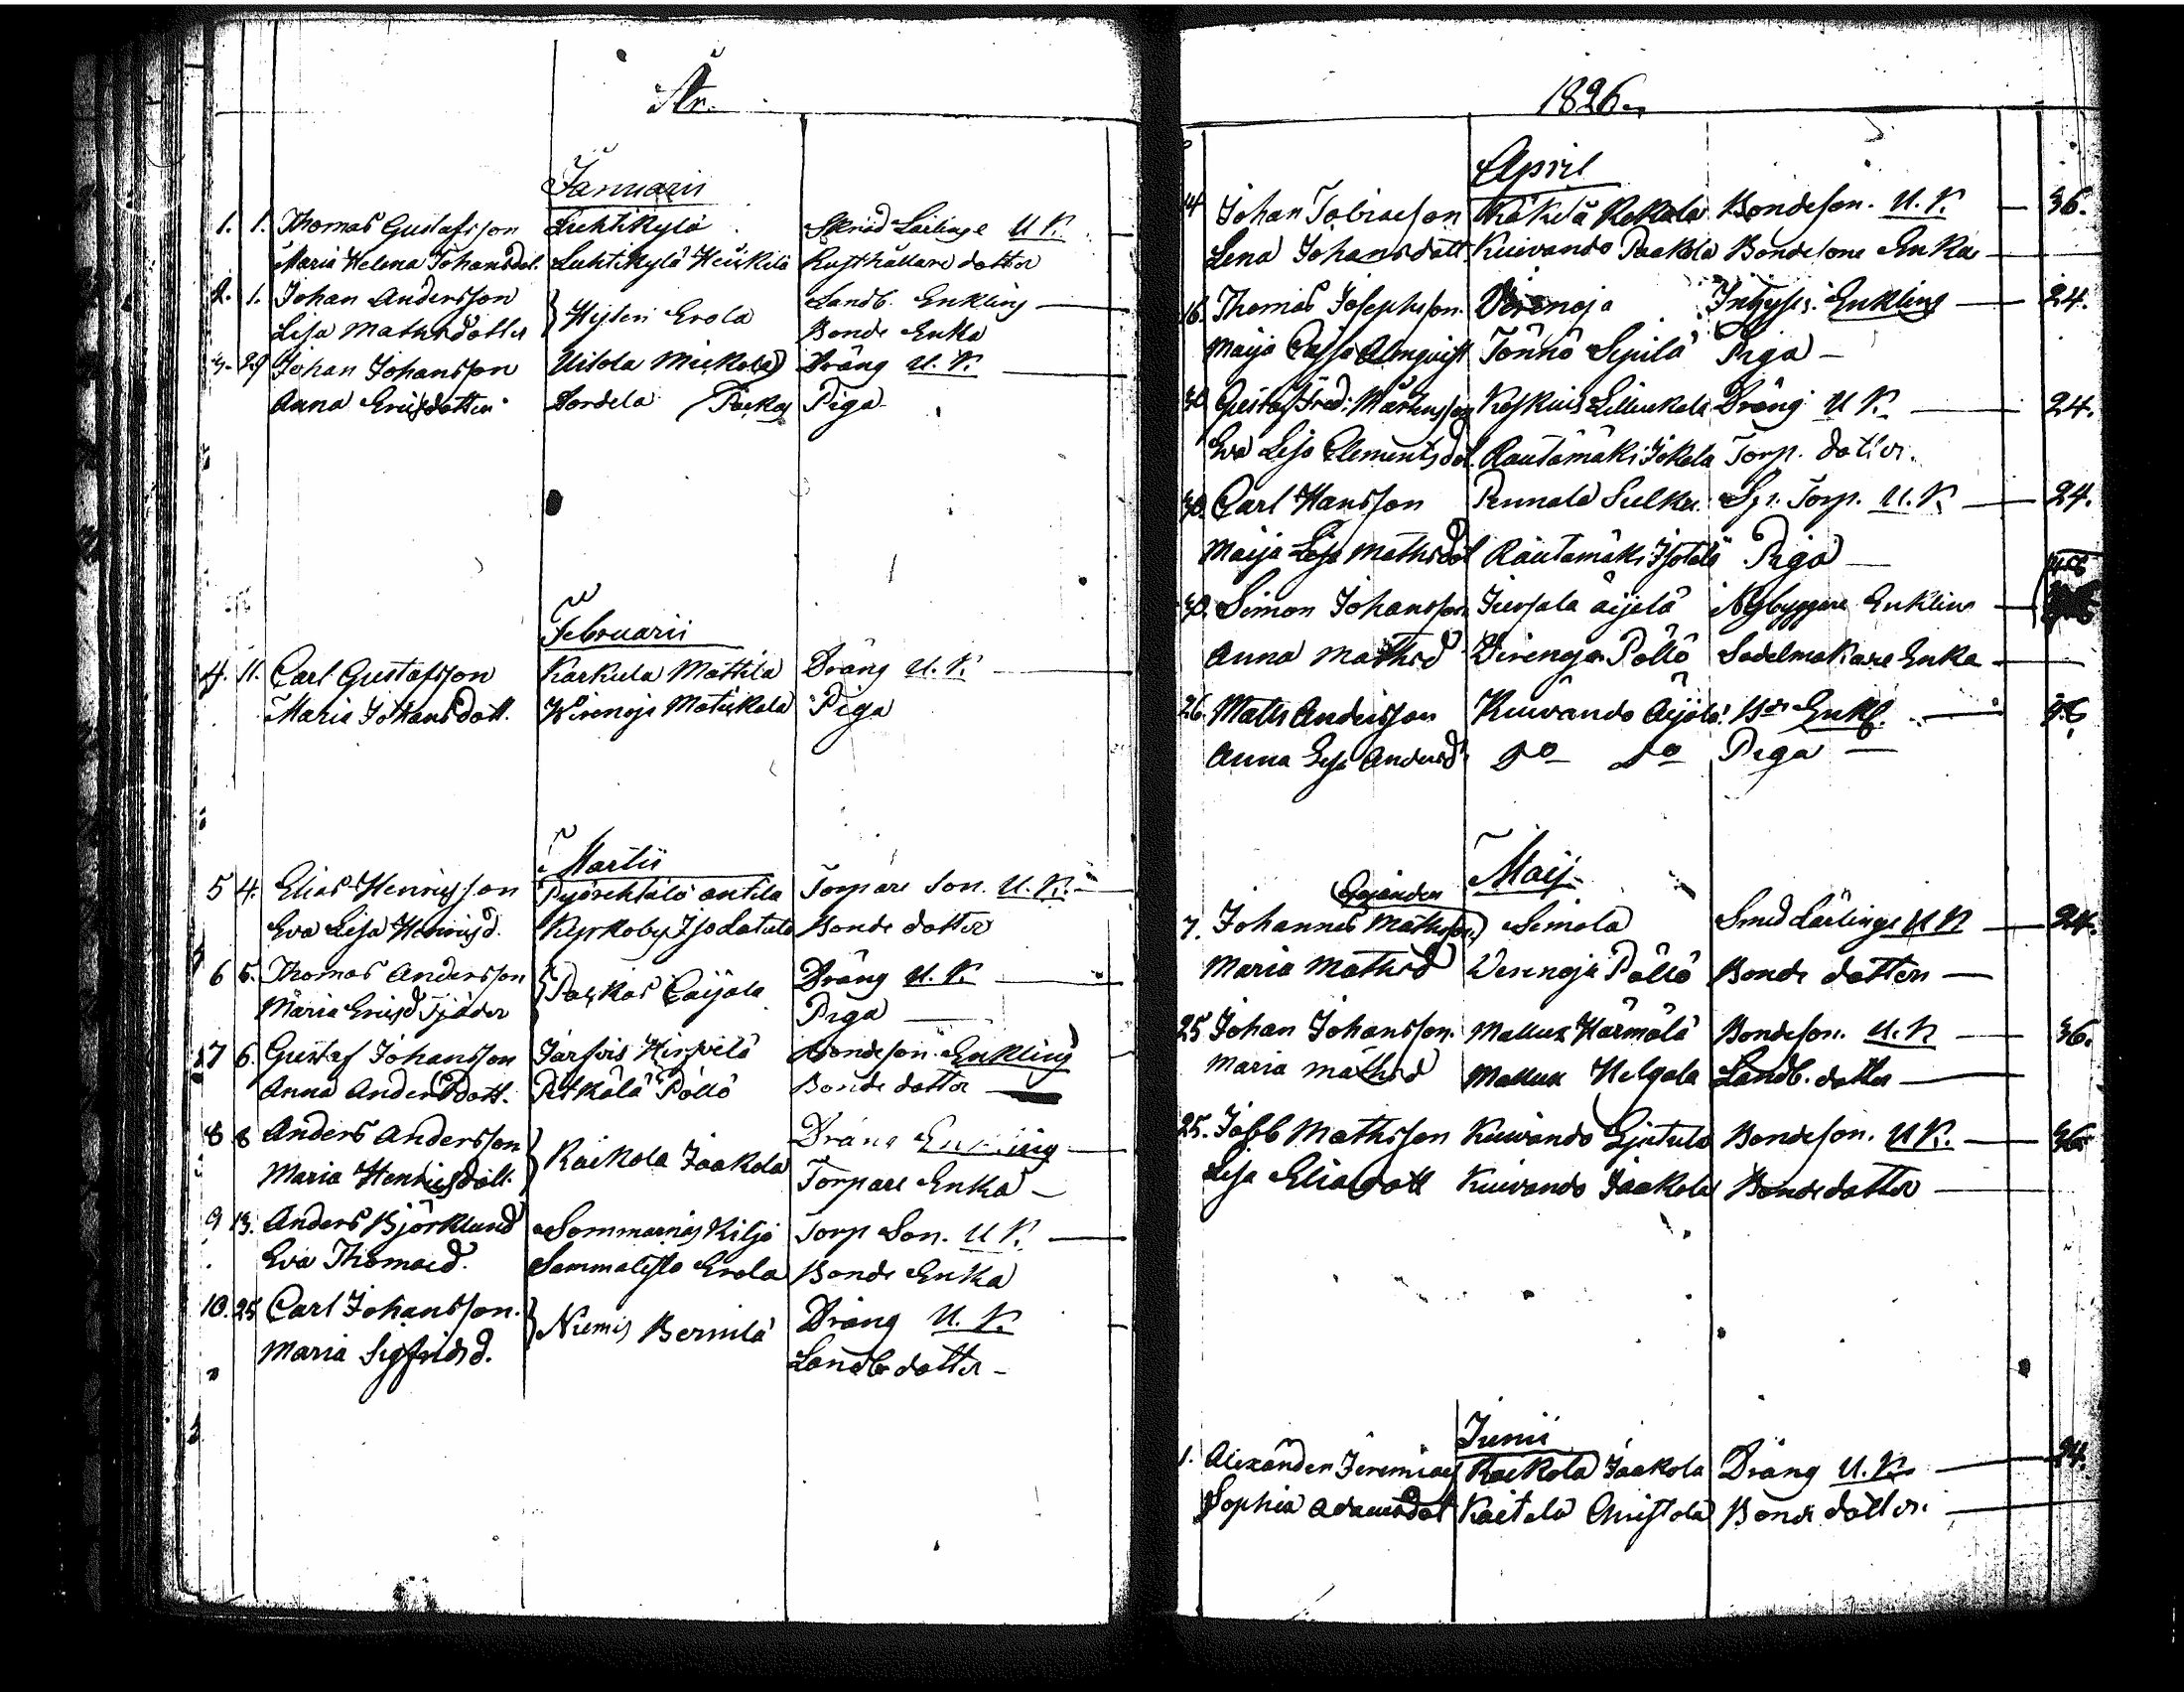 År
Januarii
1. 1. Thomas Gustafsson Luhtikylä Skräd Lärlinge U. K.
Maria Helena Johansdot. Luhtikylä Heikilä Rusthållare dotter
2. 1. Johan Andersson Landb. Enkling
Hyteri Erola
Lisa Mathsdotter Bonde Enka
3. 29 Johan Johansson Uitola Mickola Dräng U. K.
Anna Ericsdotter Dordela Pig
Februarii
4. 11. Carl Gustafsson Karkula Mattila Dräng U. K.
Maria Johansdott. Wirenoja Matickala Piga
Martii
5 4. Elias Henricsson antila Torpare Son. U. K.
Eva Lisa Henricsd. Kyrkoby Bonde dotter
6 5. Thomas Andersson Dräng U. K.
Paskas Caijala
Maria Ericsd Tjäder Piga
7 6. Gustaf Johansson Jarfvis Hirfvelä Bondeson Enkling
Anna Andersdott. Pitkälä Pöllö Bonde dotter
8 8 Anders Andersson Dräng Enkling
Raikola Jaakola
Maria Henricsdott. Torpare Enka
9 13. Anders Björklund Sommarnäs Kiljo Torp Son. U K.
Eva Thomasd. Sammalisto Erola Bonde Enka
10. 25 Carl Johansson. Dräng U. K.
Niemis Bernila
Maria Sigfridsd. Landb dotter
1826.
April
14 Johan Tobiasson Käkelä Bondeson. U. K. 36.
Lena Johansdott Kuivando Paakola Bondesone Enka
16. Thomas Josephsson. Virenoja Inhyses. Enkling 24.
Maija Cajsa Almqvist Tönnö Sepilä Piga
30 Gustaf Fred. Mårtensson Koskuis Lillunkala Dräng U K. 24.
Eva Lisa Clementsdot. Rautamäki Jokela Torp. dotter.
30. Carl Hansson Pennala Sulku Sy. Torp. U. K. 24.
Maija Lisa Mathsdot Rautamäki Isotalo Piga
30. Simon Johansson Juvsala äijälä Nybyggare Enkling
Anna Mathsd Virenoja Pöllö Sadelmakare Enka
26. Maths Andersson Kuivando Äijälä. Bd Enkl. 36
Anna Lisa Andersd. do do Piga
Maij
Gojander
7. Johannes Mathsson Simola Smed Lärlinge U K 24.
Maria Mathsd Virenoja Pöllö Bonde dotter
25 Johan Johansson. Mallux Härmälä Bondeson. U. K 36.
Maria Mathsd Mallux Helgala Landb. dotter
25. Jacob Mathsson Kuivando Ljutula Bondeson. U K. 36
Lisa Eliasdott Kuivando Jaakola Bonde dotter
Junii
1. Alexander Jeremias Raikola Jaakola Dräng U. K. 24.
Sophia Adamsdot Kaitala Christola Bonde dotter.